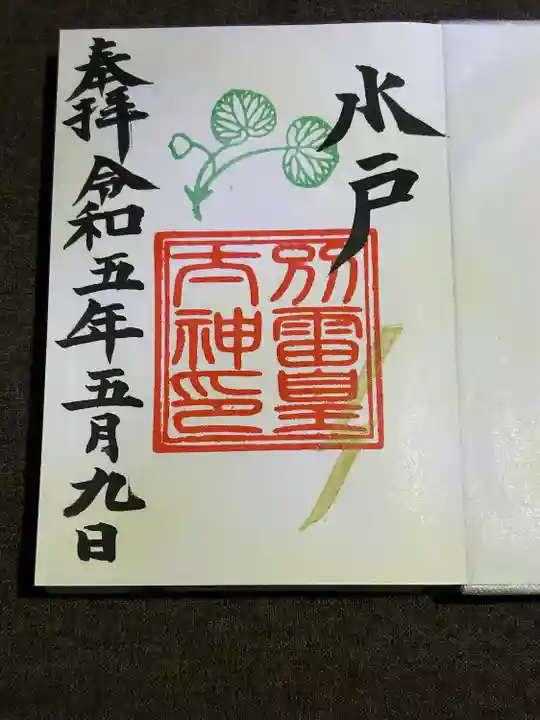 水戸
別雷皇
太神印
奉拝
令和五年五月九日